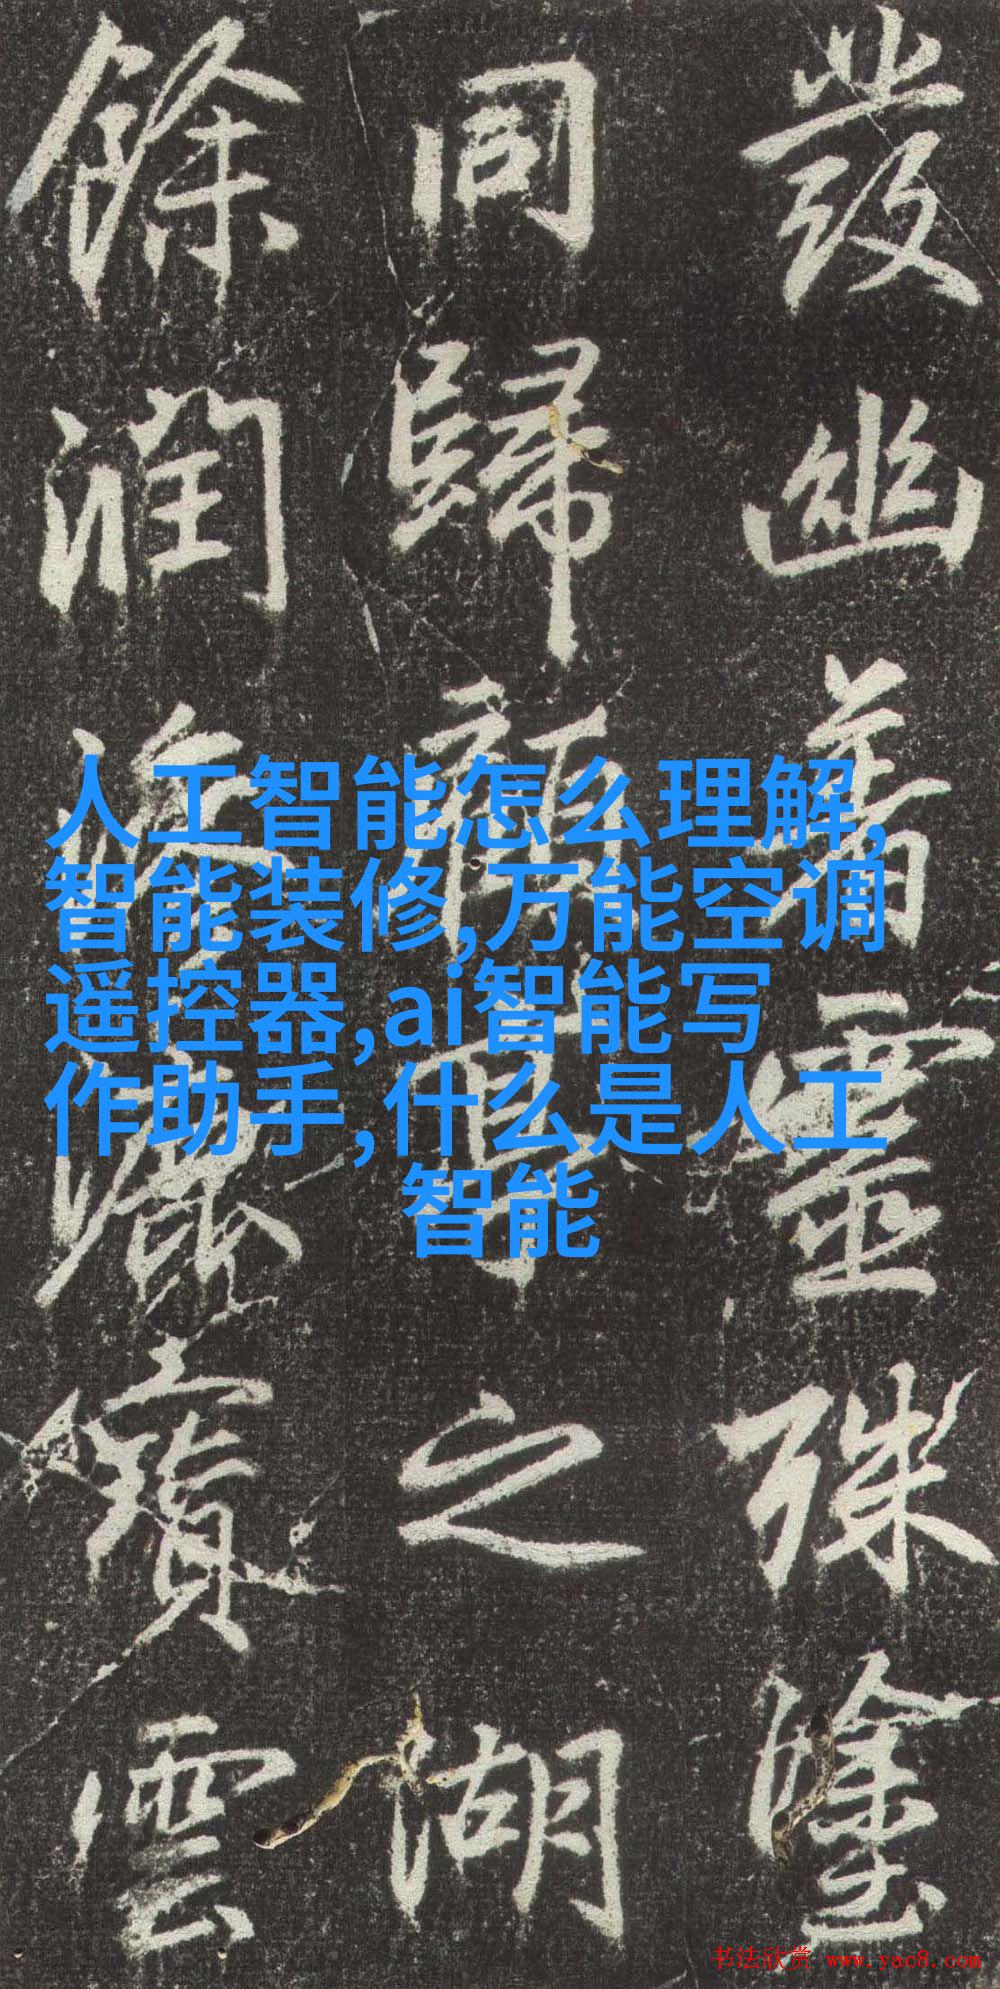 發幽靈殊
同歸之湖
餘潤雲
人工智能怎么理解,
智能装修,万能空调
遥控器,ai智能写
作助手,什么是人工
智能
书法欣赏 www.yac8.com